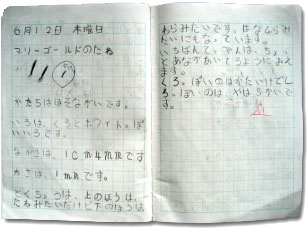 6月12日 木曜日
マリーゴールドのたね
かたちはほそながいです。
いろは、くろとホワイト。ぽ
いいろです。
ながさは、1cm4mmです
は、1mmです。
とくちょうは、上のほうは、
たねみたいだけど下のほうは
わらみたいです。
みたいにな。ています。
いちばんて。ぺんは、ちょ。
とあながあいてるようにみえ
ます。
しろ。ぽいのはかたいけどし
ろ。ぽいのは やわらかいで
す。